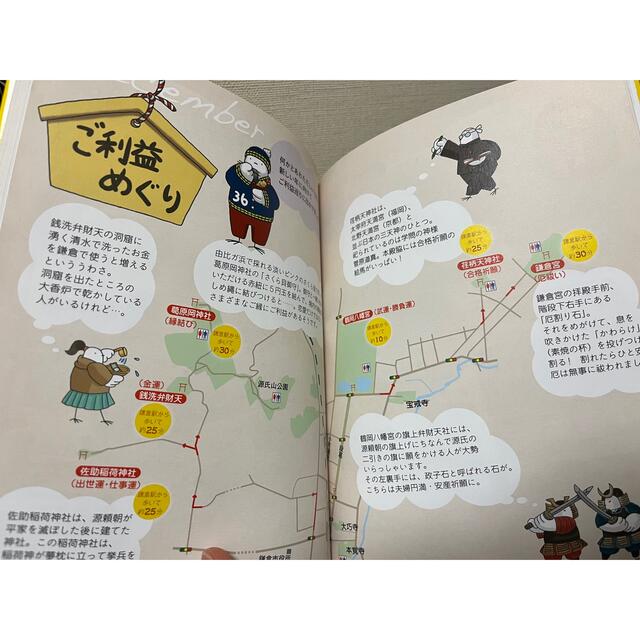 ember
ご利益
めぐり
36.
銭洗弁財天の洞窟に
湧く清水で洗ったお金
を鎌倉で使うと増える
といううわさ。
洞窟を出たところの
大香炉で乾かしている
人がいるけれど…。
由比ガ浜で採れる淡いピンクのさ
葛原岡神社の「さくら貝御守」
いただける赤紐に5円玉を結んで、
しめ縄に結びつけると…、恋愛
さまざまなご縁にご利益があるそう
葛原岡神社
(縁結び)
鎌倉駅から
歩いて
約30分
源氏山公園
(金運)
銭洗弁財天
鎌倉駅から
歩いて
約25分
佐助稲荷神社
(出世運・仕事運)
鎌倉駅から
歩いて
約25分
佐助稲荷神社は、源頼朝が
平家を滅ぼした後に建てた
神社。この稲荷神社は、
稲荷神が夢枕に立って挙兵を
鎌倉市役所
荏柄天神社は、
太宰府天満宮(福岡)、
北野天満宮(京都)と
並ぶ日本の三天神のひとつ。
祀られているのは学問の神様
菅原道真。本殿脇には合格祈願の
絵馬がいっぱい!
鎌倉駅から
歩いて
約25分
荏柄天神社
(合格祈願)
鎌倉駅から
歩いて
約30分
鎌倉宮
(厄祓い)
鶴岡八幡宮(武運・勝負運)
鎌倉駅から
歩いて
約10分
鎌倉宮の拝殿手前、
階段下右手にある
「厄割り石」。
それをめがけて、息を
吹きかけた「かわらけ」
(素焼の杯)を投げつけ
割る! 割れたらひと安
厄は無事に祓われまし
宝戒寺
鶴岡八幡宮の旗上弁財天社には、
源頼朝の旗上げにちなんで源氏の
二引きの旗に願をかける人が大勢
いらっしゃいます。
その左裏手には、政子石と呼ばれる石が。
こちらは夫婦円満・安産祈願に。
大巧寺
本覚寺